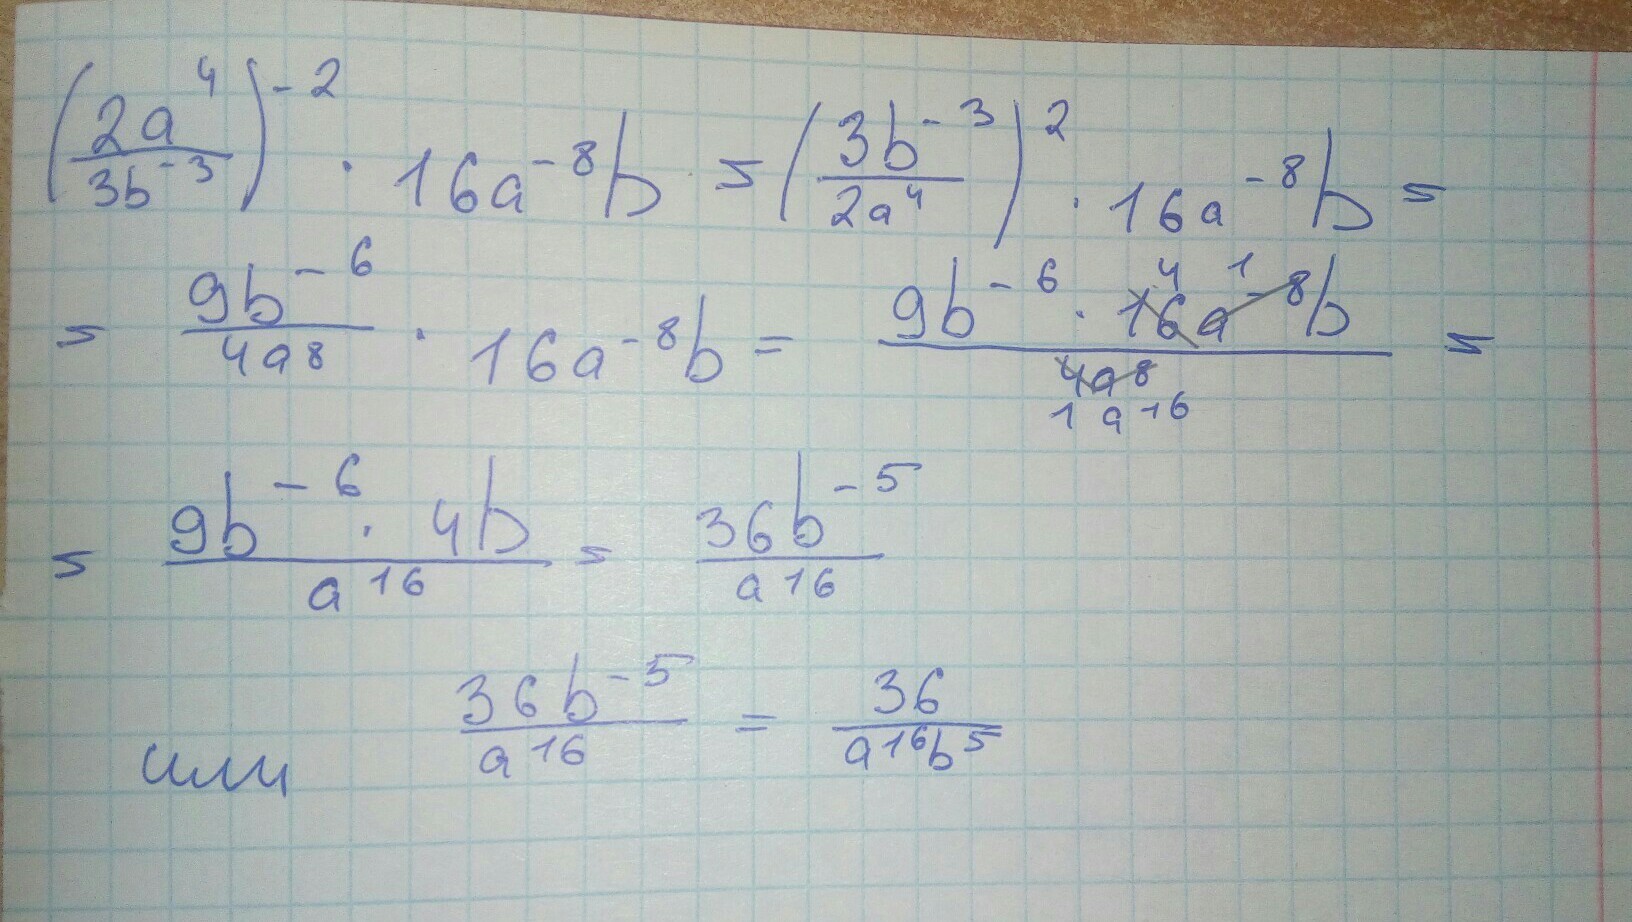 (2a⁴/3b⁻³)⁻² · 16a⁻⁸b = (3b⁻³/2a⁴)² · 16a⁻⁸b =
= 9b⁻⁶/4a⁸ · 16a⁻⁸b = 9b⁻⁶ · 16a⁻⁸b 4 1/4a⁸ 1 a¹⁶ =
= 9b⁻⁶ · 4b/a¹⁶ = 36b⁻⁵/a¹⁶
или 36b⁻⁵/a¹⁶ = 36/a¹⁶b⁵